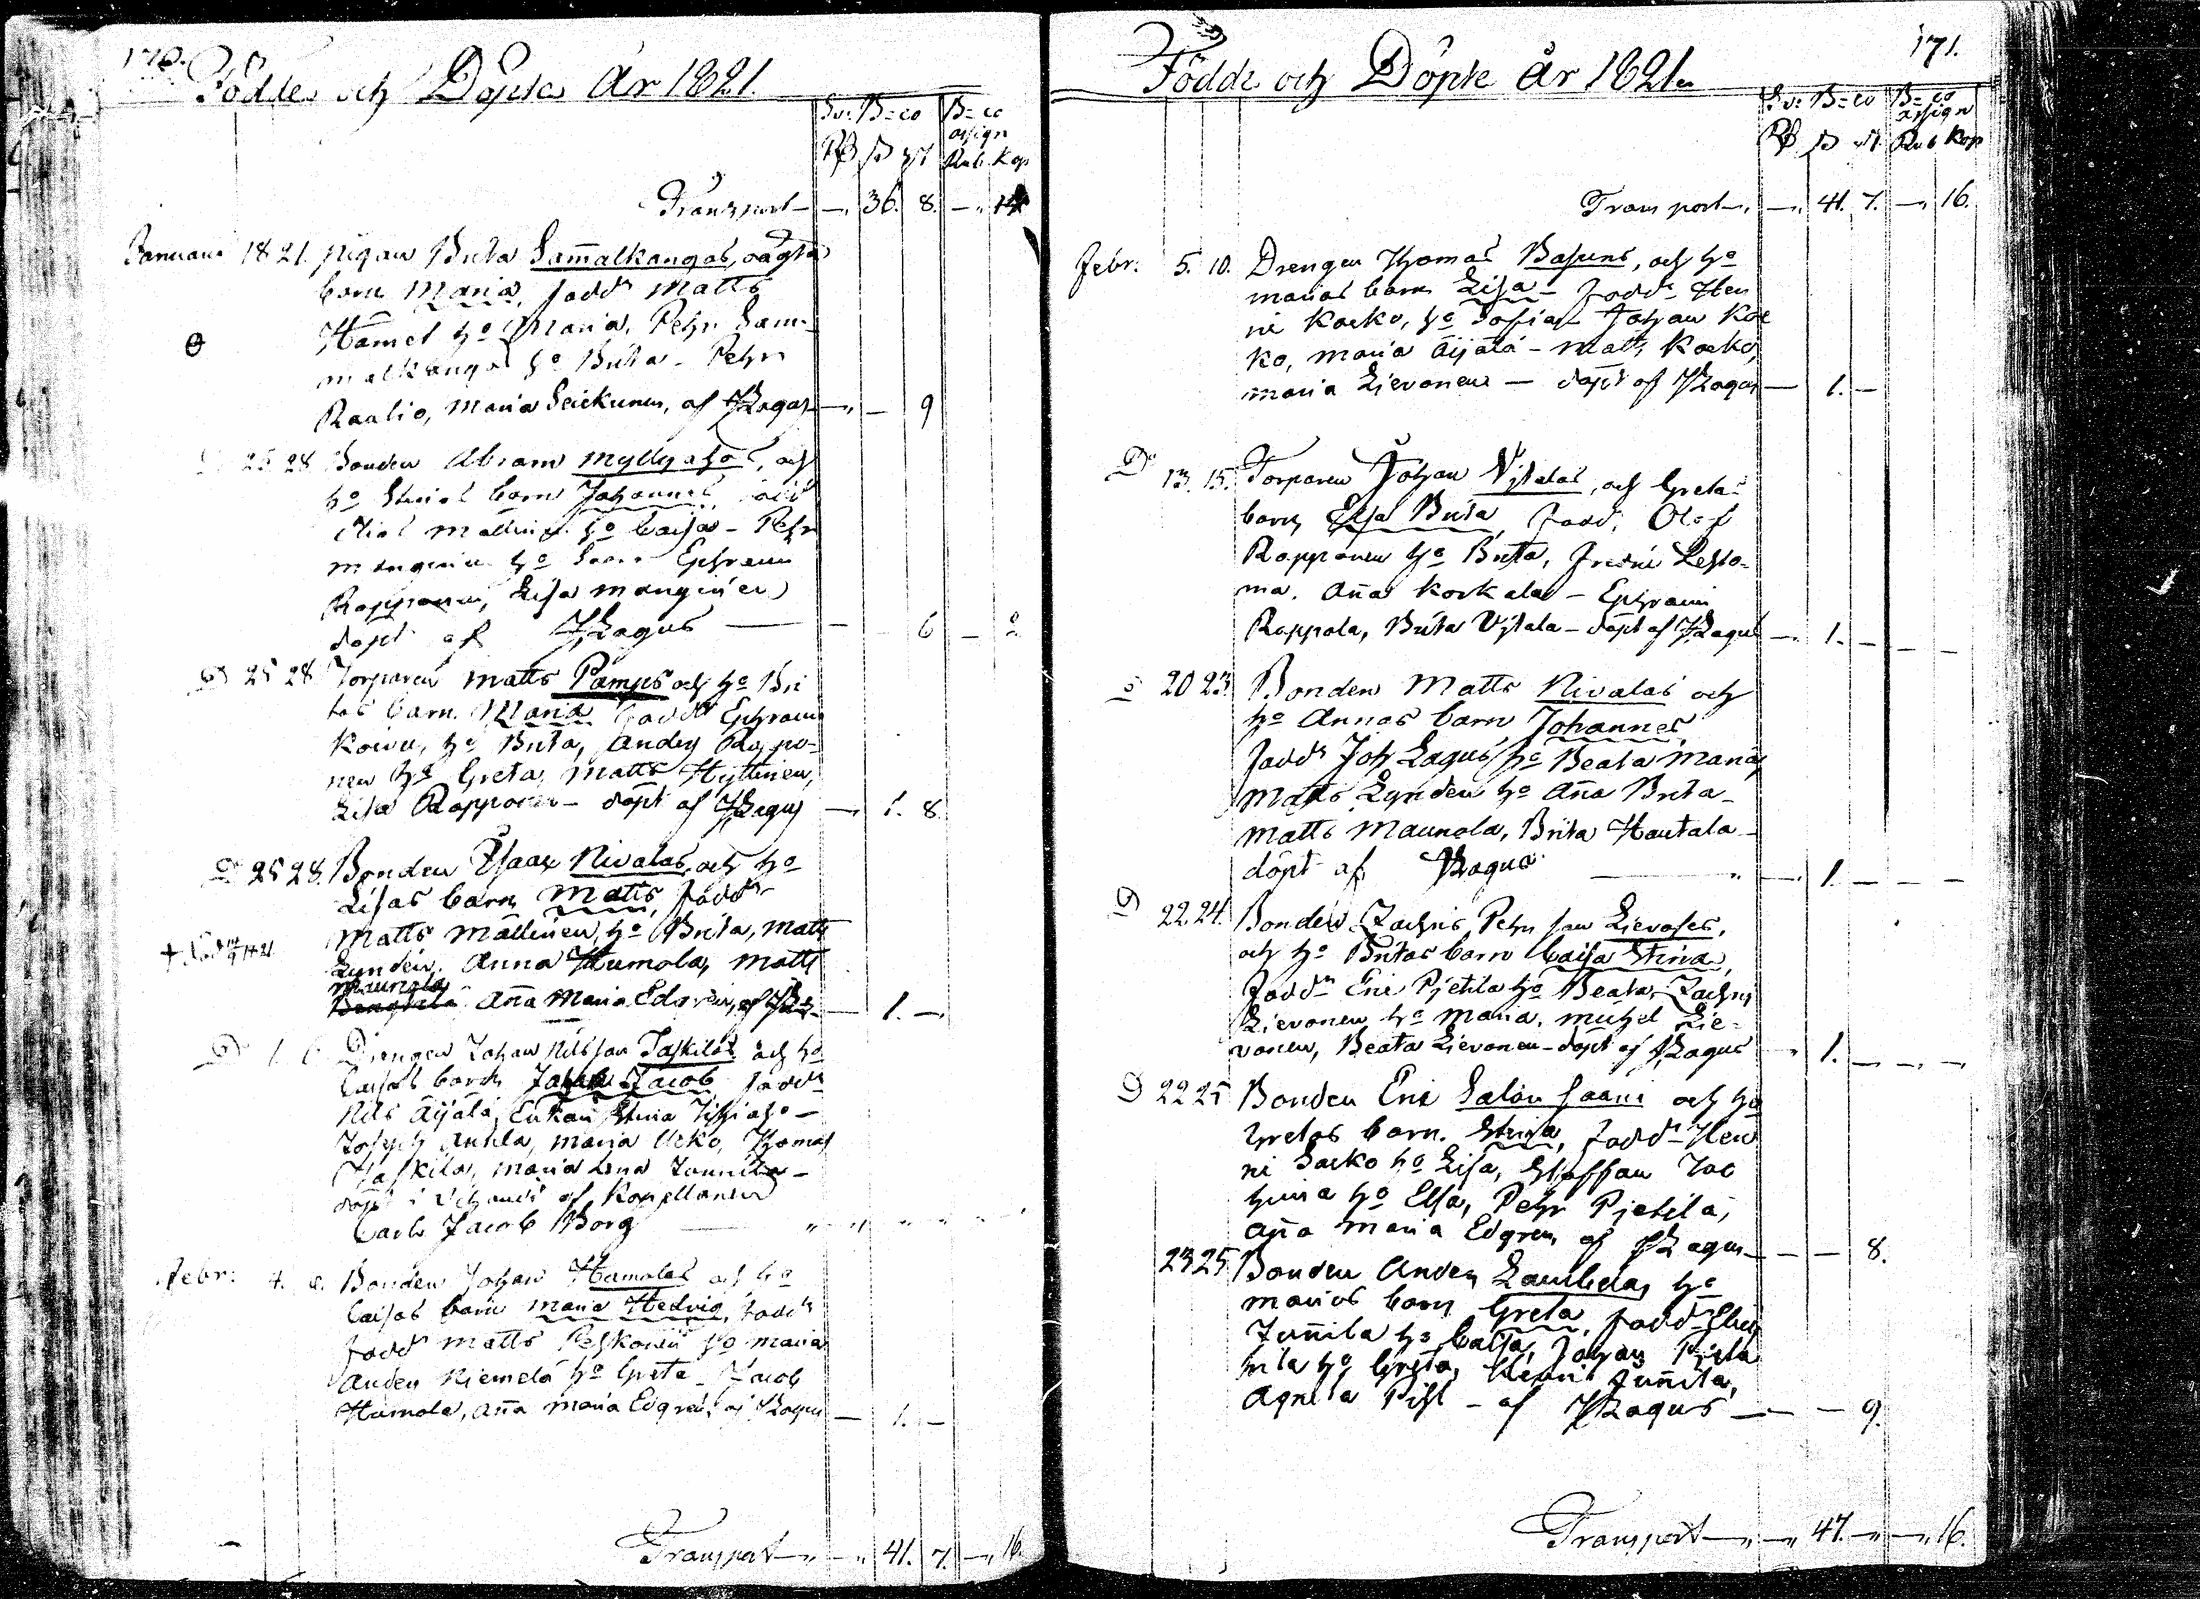 170.
Födde och Döpte År 1821.
Sv: B=co B=co
assign
Rub Kop
Transport — 36. 8.
Januari 18 21. pigan Brita Sam̄alkangas, oägta
barn Maria, fadd:r Matts
Hämet h:o Maria, Pehr Sam-
malkangas h:o Brita - Pehr
Raalio, Maria Seickunen, af JLagus — 9
25 28 Bonden Abram Myllyahos, och
h:o Stinas barn Johannes, fadd
Elias Mällinen h:o Caisa - Pehr
Manginen h:o Ephraim
Rapponen, Lisa Manginen
döpt af JLagus — 6
D:o 25 28 Torparen Matts Pamps och h:o Bri
tas barn Maria fadd:r Ephraim
Koivu, h:o Brita, Anders Rappo-
nen h:o Greta, Matts Hyttinen,
Lisa Rapponen - döpt af JLagus — 1. 8.
D:o 25 28. Bonden Isaac Nivalas, och h:o
Lisas barn Matts, fadd:r
Matts Mällinen, h:o Brita, Matts
Lyndén, Anna Humola, Matts
Maunola
Anna Maria Edgrén, af JLag — 1. —
D:o Drengen Johan Nilsson Taskilas och h:o
Caisas barn Johan Jacob fadd:r
Nils Äijälä, Enkan Stina
Joseph Anttila, Maria Ucko, Thomas
Taskila, Maria Lena Junnila -
döpt i af Kapellanen
Carl Jacob Borg
Febr: 4. 8. Bonden Johan Hamolas och h:o
Caisas barn Maria Hedvig, fadd:r
fadd:r Matts Peskonen h:o Maria
Anders Niemelä h:o Greta - Jacob
Humola, Anna Maria Edgrén, af JLagus — 1. —
Transport — 41. 7. — 16.
171.
Födde och Döpte År 1821.
Sv: B=co B=co
assign
Rub Kop
Transport — 41. 7. — 16.
Febr: 5. 10. Drengen Thomas Basuns, och h:o
Marias barn Lisa - fadd:r Hen
ric Kocko, h:o Sofia - Johan Koc
ko, Maria Äijälä - Matts Kocko,
Maria Lievonen — döpt af JLagus — 1. —
D:o 13. 15. Torparen Johan Vjtalas, och Gretas
barn Elsa Brita, fadd:r Olof
Rapponen h:o Brita, Fredric Lesto-
ma. Anna Korkala - Ephraim
Rappola, Brita Vjtala - döpt af JLagus — 1. —
20 23 Bonden Matts Nivalas och
h:o Annas barn Johannes,
fadd:r Joh Lagus h:o Beata Maria,
Matts Lynden h:o Anna Brita -
Matts Maunola, Brita Hautala -
döpt af JLagus — 1. —
D:o 22. 24. Bonden Zachris Pehrsson Lievoses,
och h:o Britas barn Caisa Stina,
fadd:r Eric Pjetilä h:o Beata, Zachris
Lievonen h:o Maria, Michel Lie-
vonen, Beata Lievonen - döpt af JLagus — 1. —
D:o 22 25 Bonden Eric Salonsaari och h:o
Gretas barn. Stina, fadd:r Hen
ric Sacko h:o Lisa, Staffan Joc
huina h:o Elsa, Pehr Pjetilä,
Anna Maria Edgren af JLagus — 8.
23 25 Bonden Anders Lambelas h:o
Marias barn Greta, fadd:r
Junnila h:o Caisa, Johan
h:o Greta, Henric Junnila,
Agneta Pihl - af JLagus — 9.
Transport — 47. — 16.